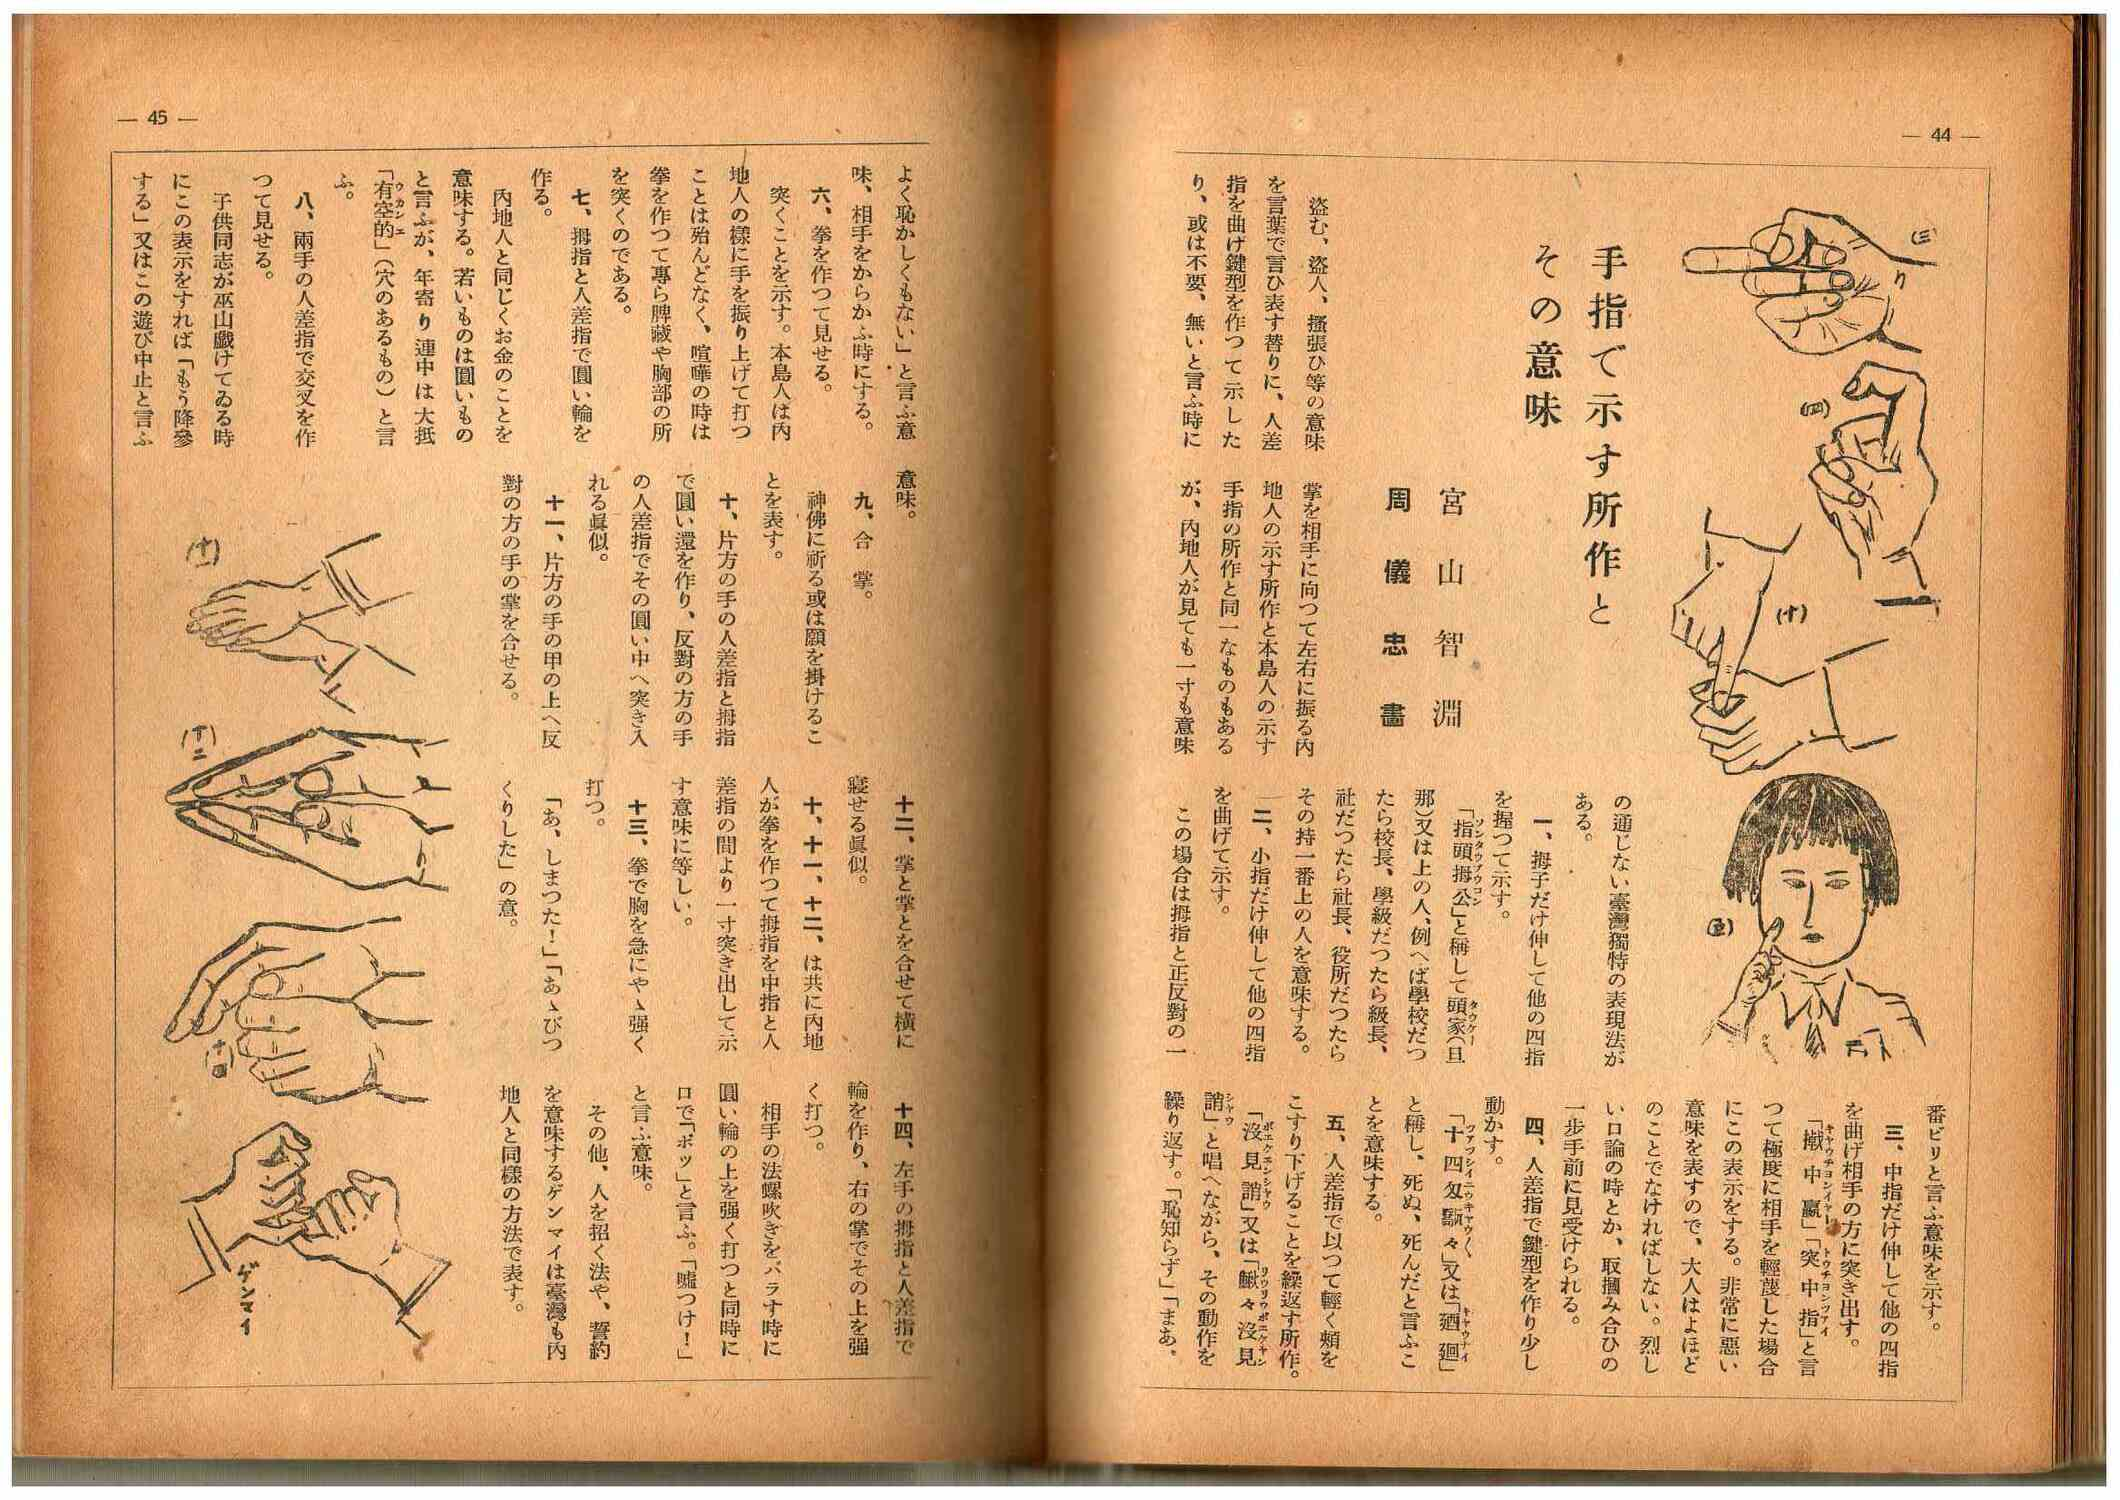 — 44 —
手指で示す所作と
その意味
宮山智淵
周儀忠畫
盜む、盜人、搔張ひ等の意味
を言葉で言ひ表す替りに、人差
指を曲げ鍵型を作つて示した
り、或は不要、無いと言ふ時に
掌を相手に向つて左右に振る內
地人の示す所作と本島人の示す
手指の所作と同一なものもある
が、內地人が見ても一寸も意味
の通じない臺灣獨特の表現法が
ある。
一、拇子だけ伸して他の四指
を握つて示す。
「指頭拇公」と稱して頭家(旦
那)又は上の人、例へば學校だつ
たら校長、學級だつたら級長、
社だつたら社長、役所だつたら
その持一番上の人を意味する。
二、小指だけ伸して他の四指
を曲げて示す。
この場合は拇指と正反對の一
番ビリと言ふ意味を示す。
三、中指だけ伸して他の四指
を曲げ相手の方に突き出す。
「撠中贏」「突中指」と言
つて極度に相手を輕蔑した場合
にこの表示をする。非常に惡い
意味を表すので、大人はよほど
のことでなければしない。烈し
い口論の時とか、取摑み合ひの
一步手前に見受けられる。
四、人差指で鍵型を作り少し
動かす。
「十四匁々」又は「廼廻」
と稱し、死ぬ、死んだと言ふこ
とを意味する。
五、人差指で以つて輕く頰を
こすり下げることを繰返す所作。
「沒見誚」又は「鰍々沒見
誚」と唱へながら、その動作を
繰り返す。「恥知らず」「まあ、
(三)
(四)
(十)
(五)
— 45 —
よく恥かしくもない」と言ふ意
味、相手をからかふ時にする。
六、拳を作つて見せる。
突くことを示す。本島人は內
地人の樣に手を振り上げて打つ
ことは殆んどなく、喧嘩の時は
拳を作つて專ら脾藏や胸部の所
を突くのである。
七、拇指と人差指で圓い輪を
作る。
內地人と同じくお金のことを
意味する。若いものは圓いもの
と言ふが、年寄り連中は大抵
「有空的」(穴のあるもの)と言
ふ。
八、兩手の人差指で交叉を作
つて見せる。
子供同志が巫山戲けてゐる時
にこの表示をすれば「もう降參
する」又はこの遊び中止と言ふ
意味。
九、合掌。
神佛に祈る或は願を掛けるこ
とを表す。
十、片方の手の人差指と拇指
で圓い還を作り、反對の方の手
の人差指でその圓い中へ突き入
れる眞似。
十一、片方の手の甲の上へ反
對の方の手の掌を合せる。
十二、掌と掌とを合せて橫に
寢せる眞似。
十、十一、十二、は共に內地
人が拳を作つて拇指を中指と人
差指の間より一寸突き出して示
す意味に等しい。
十三、拳で胸を急にやゝ强く
打つ。
「あ、しまつた！」「あゝびつ
くりした」の意。
十四、左手の拇指と人差指で
輪を作り、右の掌でその上を强
く打つ。
相手の法螺吹きをバラす時に
圓い輪の上を强く打つと同時に
口で「ボッ」と言ふ。「噓つけ！」
と言ふ意味。
その他、人を招く法や、誓約
を意味するゲンマイは臺灣も內
地人と同樣の方法で表す。
(十一)
(十二)
(十四)
ゲンマイ